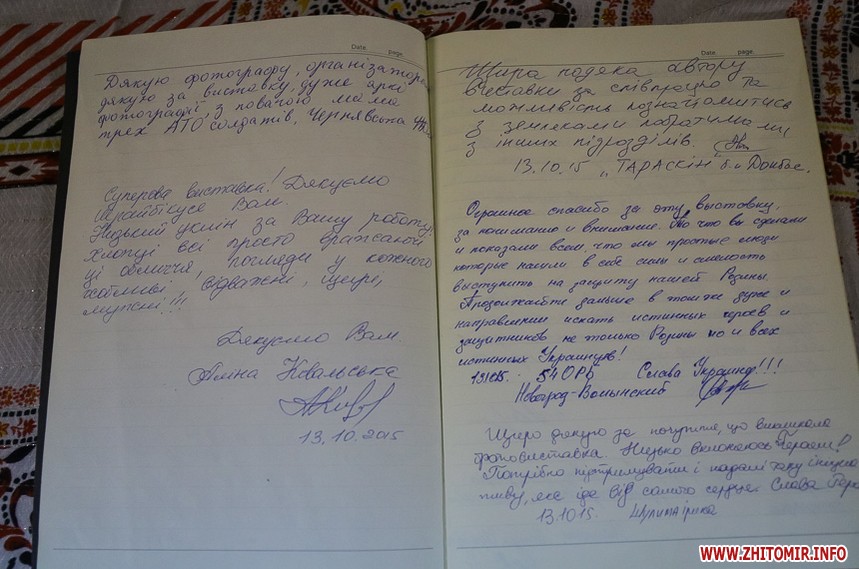 Date. page.
Дякую фотографу, організаторам
дякую за виставку, дуже яркі
фотографії, з повагою мама
трех АТО солдатів, Чернявська
Суперова виставка! Дякуємо
щрайбікусе Вам.
Низький уклін за Вашу роботу,
Хлопці всі просто вражаючі
ці обличчя, погляди у кожного
особливі, відважні, щирі,
мужні!!!
Дякуємо Вам.
Аліна Ковальська
13.10.2015
Date. page.
Щира подяка автору
виставки за співпрацю та
можливість познайомитись
з земляками побратимами
з інших підрозділів.
13.10.15 „ТАРАСКІН" б-н Донбас.
Огромное спасибо за эту выставку,
за понимание и внимание. То что вы сделали
и показали всем, что мы простые люди
которые нашли в себе силы и смелость
выступить на защиту нашей Родины.
Продолжайте дальше в том же духе и
направлении искать истинных героев и
защитников не только Родины но и всех
истинных Украинцев!
54 ОРБ Слава Украине!!!
Новоград-Волынский
Щиро дякую за почуття, що викликала
фотовиставка. Низько вклоняюсь Героям!
Потрібно підтримувати і надалі таку ініціа
тиву, яке іде від самого серця. Слава
13.10.15. Шулима Ірина
WWW.ZHITOMIR.INFO